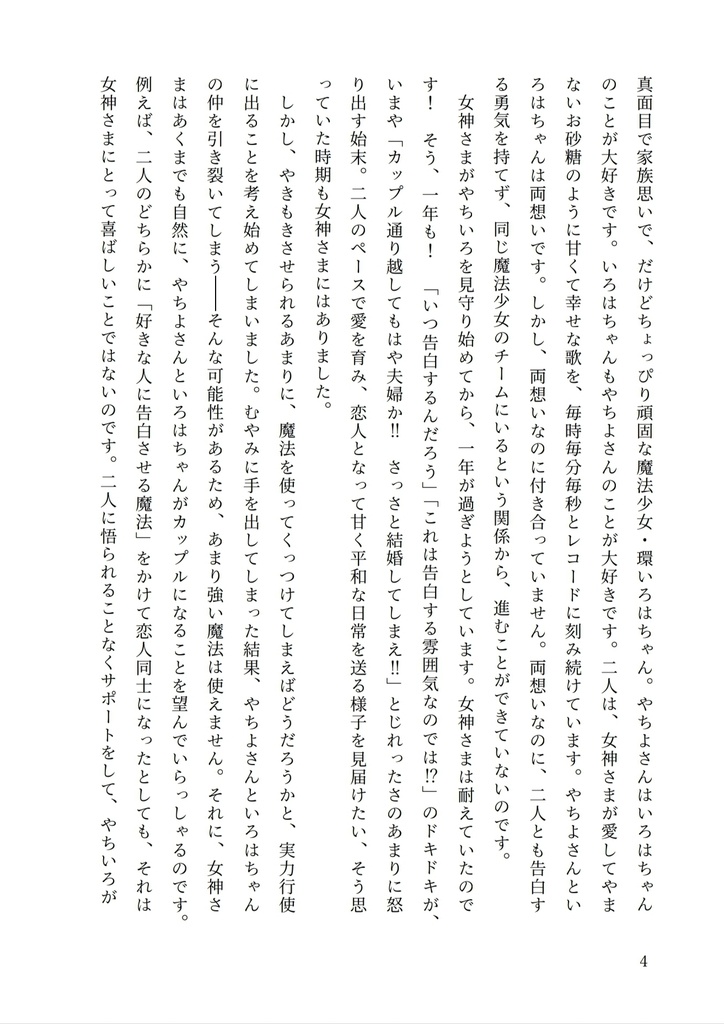 真面目で家族思いで、だけどちょっぴり頑固な魔法少女・環いろはちゃん。やちよさんはいろはちゃん
のことが大好きです。いろはちゃんもやちよさんのことが大好きです。二人は、女神さまが愛してやま
ないお砂糖のように甘くて幸せな歌を、毎時毎分毎秒とレコードに刻み続けています。やちよさんとい
ろはちゃんは両想いです。しかし、両想いなのに付き合っていません。両想いなのに、二人とも告白す
る勇気を持てず、同じ魔法少女のチームにいるという関係から、進むことができていないのです。
　女神さまがやちいろを見守り始めてから、一年が過ぎようとしています。女神さまは耐えていたので
す！　そう、一年も！　「いつ告白するんだろう」「これは告白する雰囲気なのでは⁉」のドキドキが、
いまや「カップル通り越してもはや夫婦か‼　さっさと結婚してしまえ‼」とじれったさのあまりに怒
り出す始末。二人のペースで愛を育み、恋人となって甘く平和な日常を送る様子を見届けたい、そう思
っていた時期も女神さまにはありました。
　しかし、やきもきさせられるあまりに、魔法を使ってくっつけてしまえばどうだろうかと、実力行使
に出ることを考え始めてしまいました。むやみに手を出してしまった結果、やちよさんといろはちゃん
の仲を引き裂いてしまう――そんな可能性があるため、あまり強い魔法は使えません。それに、女神さ
まはあくまでも自然に、やちよさんといろはちゃんがカップルになることを望んでいらっしゃるのです。
例えば、二人のどちらかに「好きな人に告白させる魔法」をかけて恋人同士になったとしても、それは
女神さまにとって喜ばしいことではないのです。二人に悟られることなくサポートをして、やちいろが
4